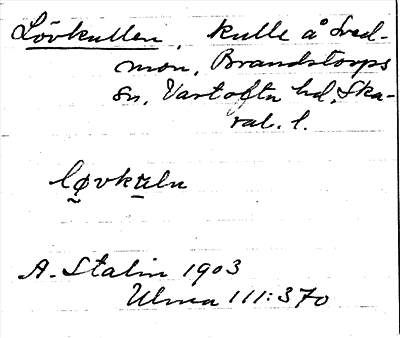 Lövkullen, kulle å Sved-
mon, Brandstorps
sn, Vartofta hd, Ska-
rab. l.
løvkuln
A. Stalin 1903
Ulma 111:370